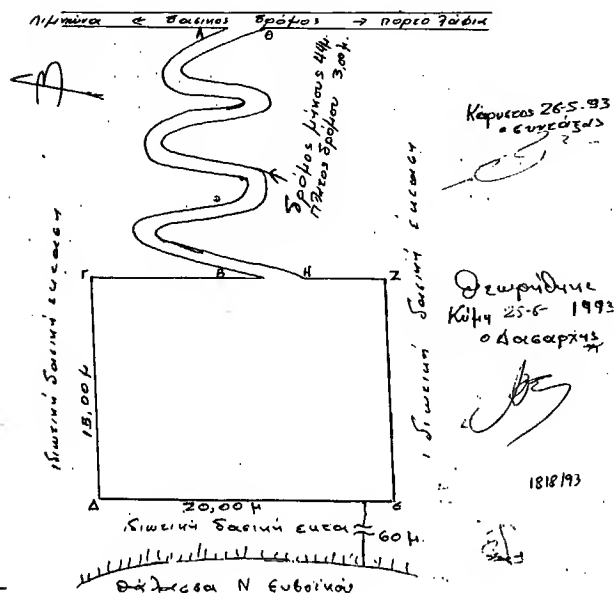 Λιμνιώνα ← δασικός δρόμος → πόρτο Λάφια
Α Θ
Δρόμος μήκους 44μ.
Πλάτος δρόμου 3,00μ.
Κάρυστος 26-5-93
ο συντάξας
Γ Β Η Ζ
ιδιωτική δασική έκταση
ιδιωτική δασική έκταση
13,00μ
Θεωρήθηκε
Κύμη 25-6-1993
ο Δασάρχης
1818/93
Δ 20,00μ Ε
ιδιωτική δασική εκτα
60μ.
Θάλασσα Ν Ευβοϊκού